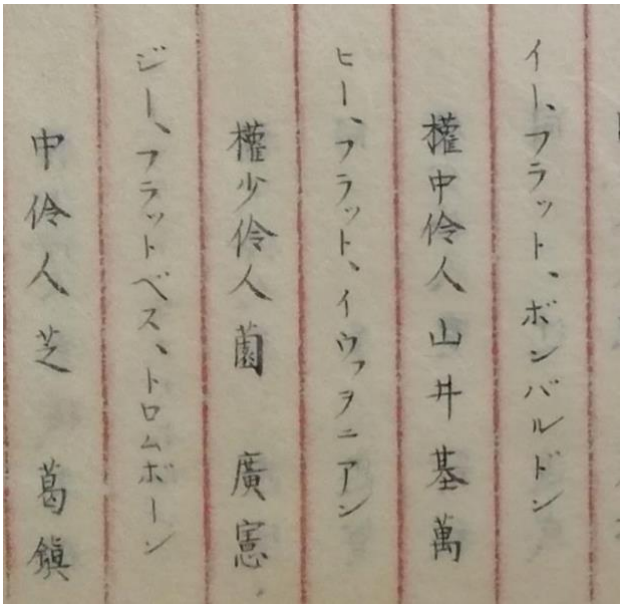 イー、フラット、ボンバルドン
權中伶人山井基萬
ヒー、フラット、イウフヲニアン
權少伶人薗 廣憲
ジー、フラットベス、トロムボーン
中伶人芝 葛鎭